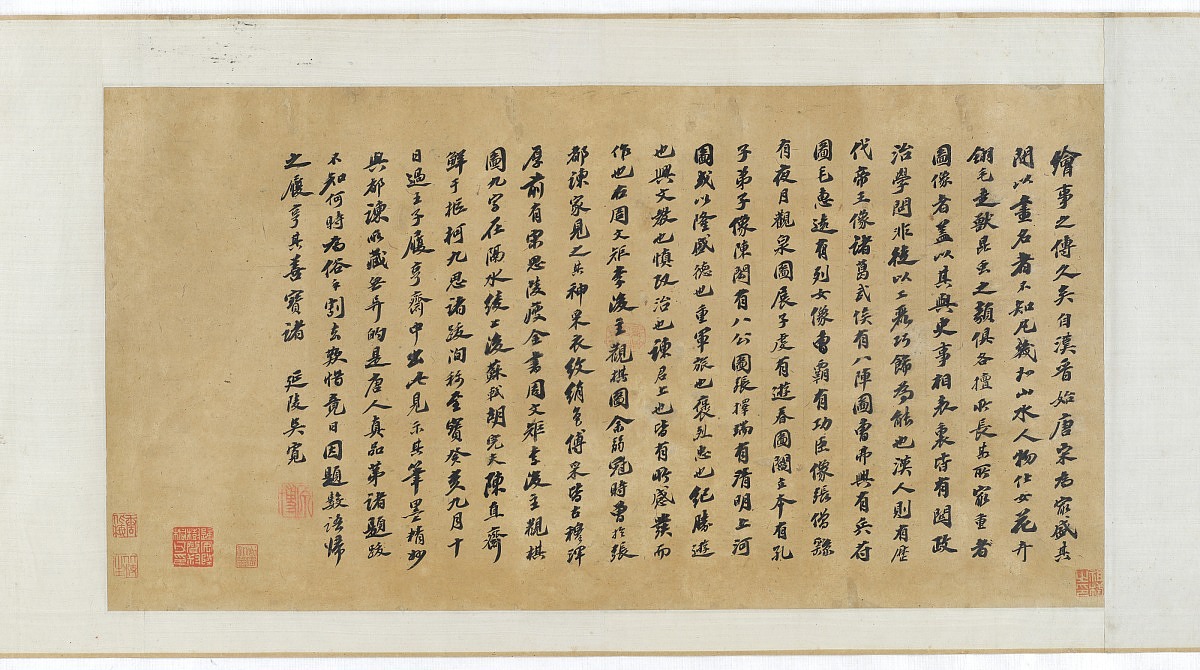 繪事之傳久矣自漢晉始唐宋為家盛其
間以畫名者不知凡幾如山水人物仕女花卉
翎毛走獸昆虫之類俱各擅所長其所最重者
圖像者蓋以其與史事相表裏皆有關政
治學問非徒以工麗巧飾為能也漢人則有歷
代帝王像諸葛武侯有八陣圖曹弗興有兵符
圖毛惠遠有列女像曹霸有功臣像張僧繇
有夜月觀泉圖展子虔有遊春圖閻立本有孔
子弟子像陳閎有八公圖張擇端有清明上河
圖或以隆盛德也重軍旅也褒烈忠也紀勝遊
也興文教也慎政治也諫君上也皆有所感發而
作也右周文矩李後主觀棋圖余弱冠時曾於張
都諫家見之其神采衣紋綃色傅采皆古穆渾
厚前有宋思陵瘦金書周文矩李後主觀棋
圖九字在隔水綾上後蘇軾胡完夫陳直齋
鮮于樞柯九思諸跋洵稱至寶癸亥九月十
日過王子履亨齋中出此見示其筆墨精妙
與都諫所藏無异的是唐人真品第諸題跋
不知何時為俗子割去歎惜竟日因題數語歸
之履亨其善寶諸 延陵吳寬